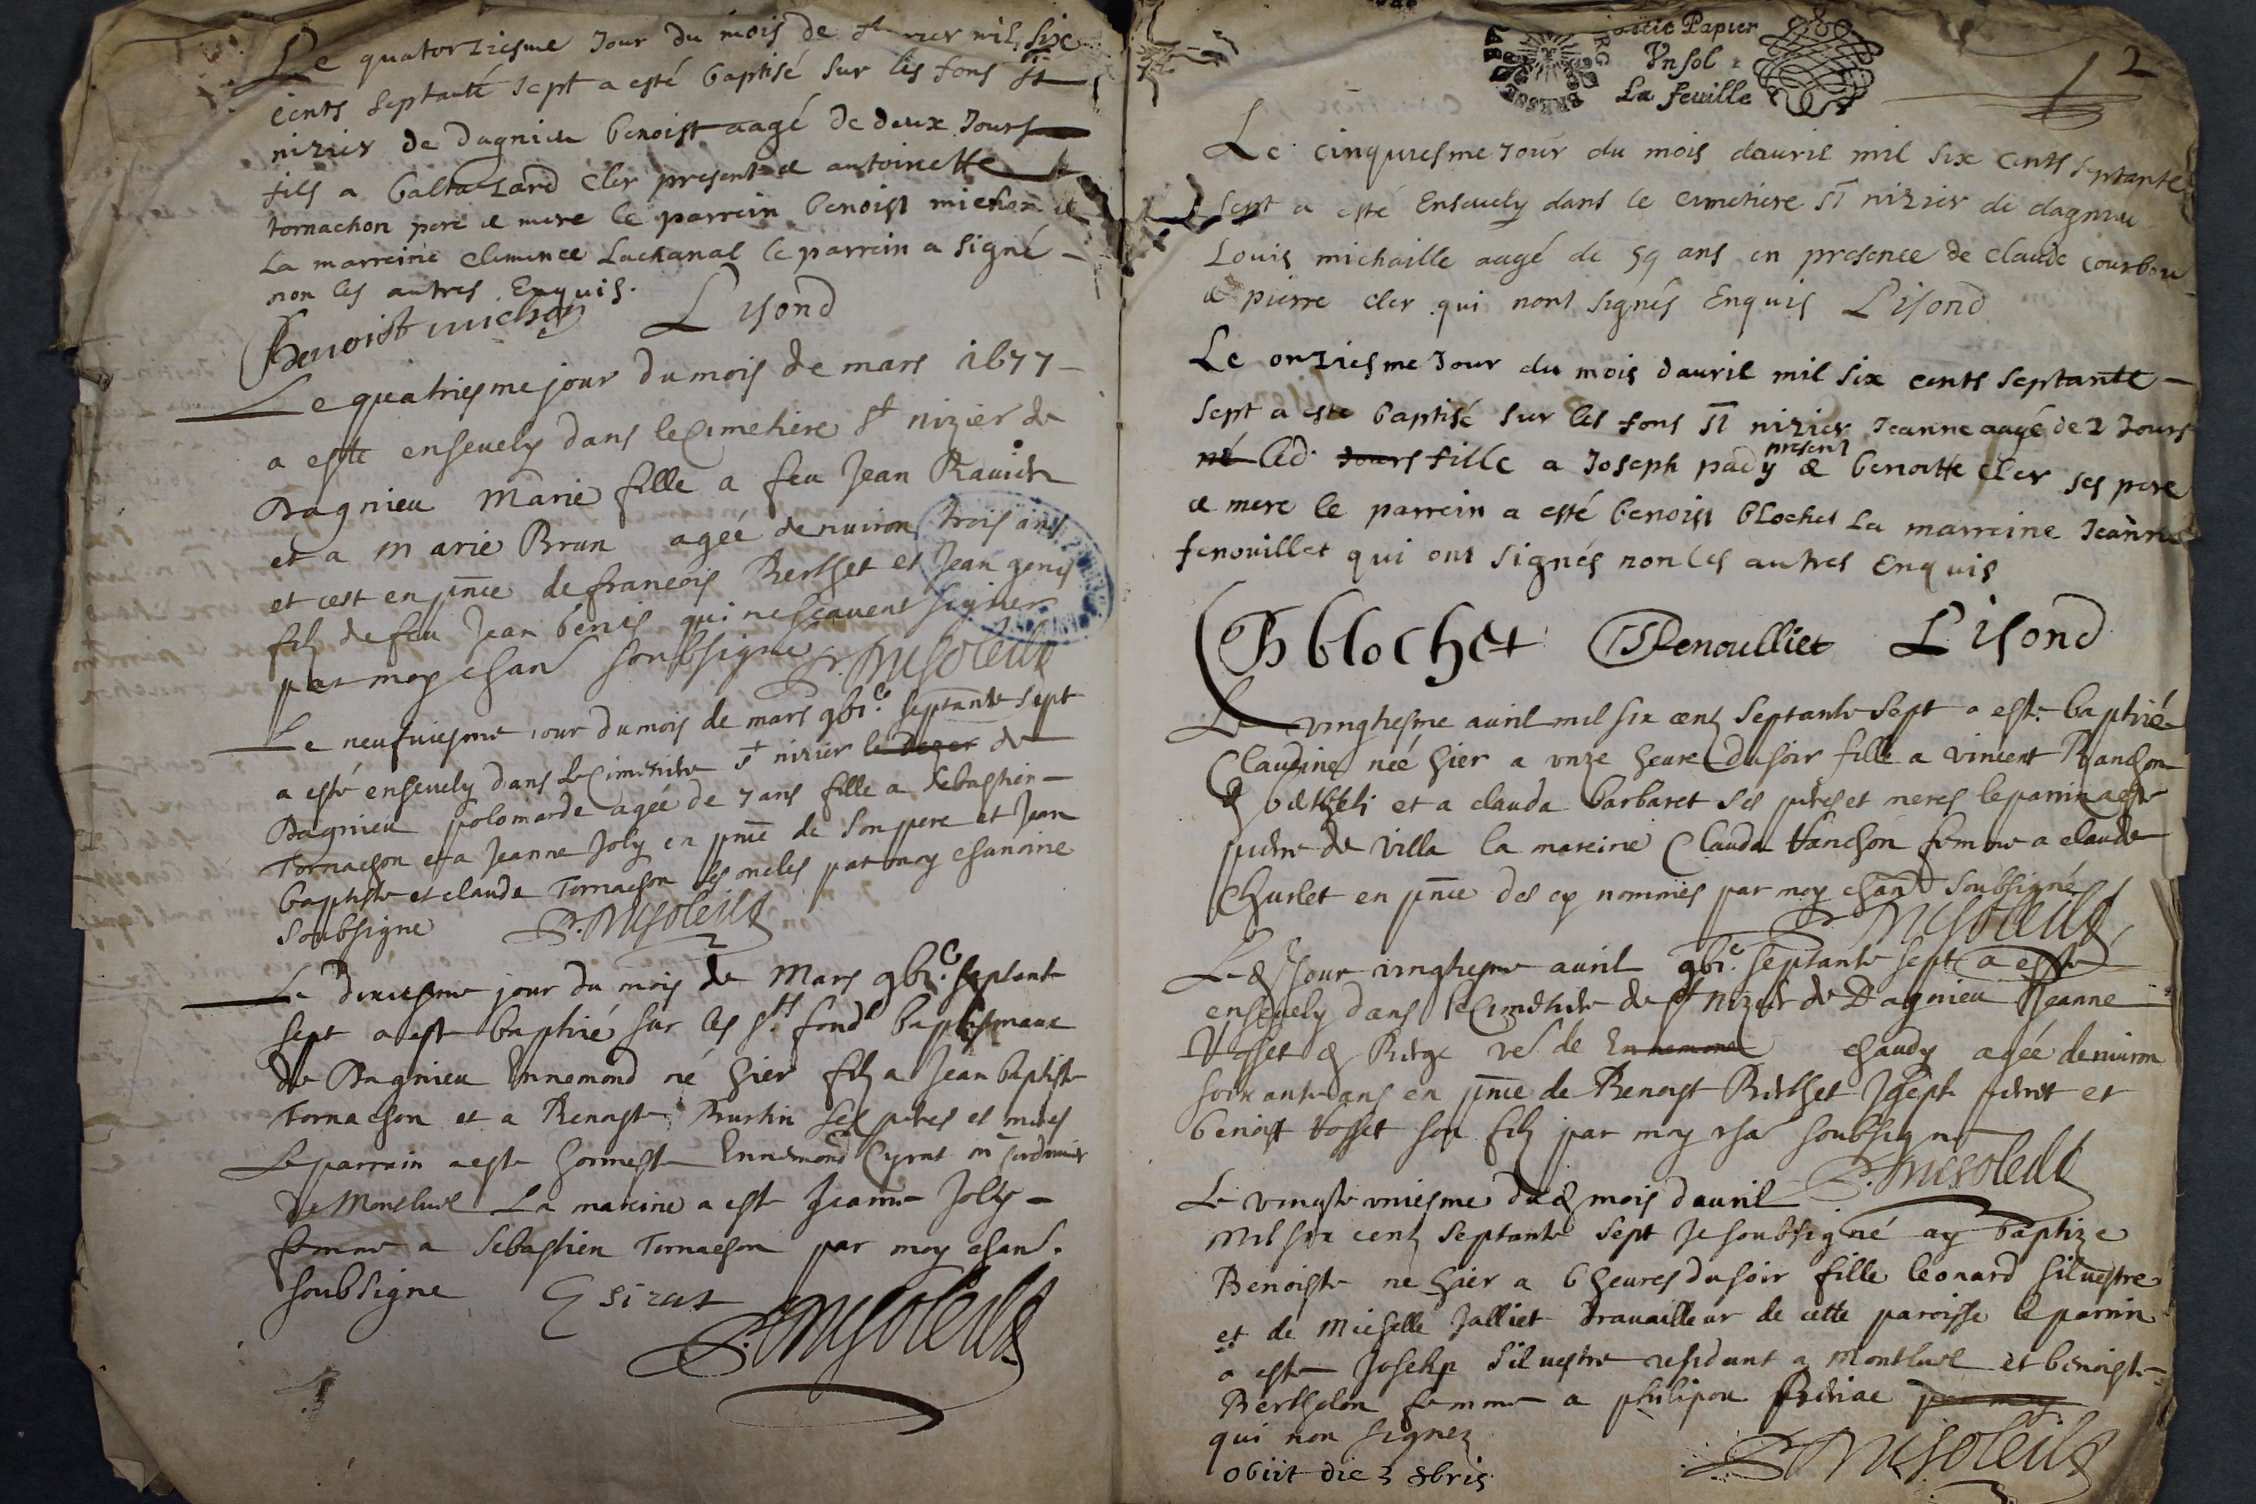 Le quatorziesme Jour du mois de feurier mil six
cents septante sept a esté baptisé sur les fons St
nizier de dagnieu benoist aagé de deux Jours
fils a baltazard Cler present & antoinette
tornachon pere & mere le parrein benoist michon &
La marreine clemence Lachanal le parrein a signé
non les autres Enquis.
Benoist michon Lisond
Le quatriesme jour du mois de mars 1677
a esté enseuely dans le Cimetiere St nizier de
Dagnieu Marie fille a feu Jean Rauier
et a Marie Brun agée denuiron trois ans
et cest en pnce de francois Berthet et Jean genis
filz de feu Jean genis qui ne scauent signer
par moy chan soubsigne
Le neufuiesme jour du mois de mars gbic septante sept
a esté enseuely dans le Cimetiere St nizier de
Dagnieu polomarde agée de 7 ans fille a sebastien
Tornachon et a Jeanne Joly en pnce de son pere et Jean
baptiste et claude Tornachon ses oncles par moy chanoine
soubsigne
Le dixiesme jour du mois de Mars gbic septante
sept a esté baptizé sur les sts fonds baptismaux
de Dagnieu Ennemond né hier filz a Jean baptiste
Tornachon et a Benoiste Burtin ses peres et meres
Le parrain a esté honneste Ennemond Cyrat
de Montluel La mareine a esté Jeanne Joly
femme a Sebastien Tornachon par moy chan.
soubsigne E sirat
cette Papier
Vn sol
La feuille
2
Le cinquiesme Jour du mois dauril mil six cents septante
sept a esté Enseuely dans le cimetiere St nizier de dagnieu
Louis michaille aagé de 59 ans en presence de claude courbou
& pierre cler qui nont signés Enquis Lisond
Le onziesme Jour du mois dauril mil six cents septante
sept a este baptisé sur les fons St nizier Jeanne aagé de 2 Jours
né led. Jours fille a Joseph pady present & benoitte cler ses pere
& mere le parrein a esté benoist blochet La marreine Jeanne
fenouillet qui ont signés non les autres Enquis
B blochet J Fenoulliet Lisond
Le vingtiesme auril mil six centz septante sept a esté baptizé
Claudine née hier a unze heure du soir fille a vincent
et a clauda barbaret ses peres et meres le parrin a esté
pierre de villa la mareine Clauda femme a claude
Churlet en pnce des cy nommés par moy chan soubsigné
Led jour vingtiesme auril gbic septante sept a esté
enseuely dans le Cimetiere de St Nizier de Dagnieu Jeanne
chaudy agée denuiron
soixante ans en pnce de Benoist Berthet Joseph et
benoist son filz par moy cha soubsigne
Le vingte uniesme dud mois dauril
Mil six centz septante sept Je soubsigné ay baptize
Benoiste né hier a 6 heures du soir fille leonard siluestre
et de Michelle Jalliet trauailleur de cette paroisse le parrin
a esté Josehp siluestre residant a Montluel et benoiste
Bertholon femme a philipon par moy
qui non signez
obiit die 3 8bris